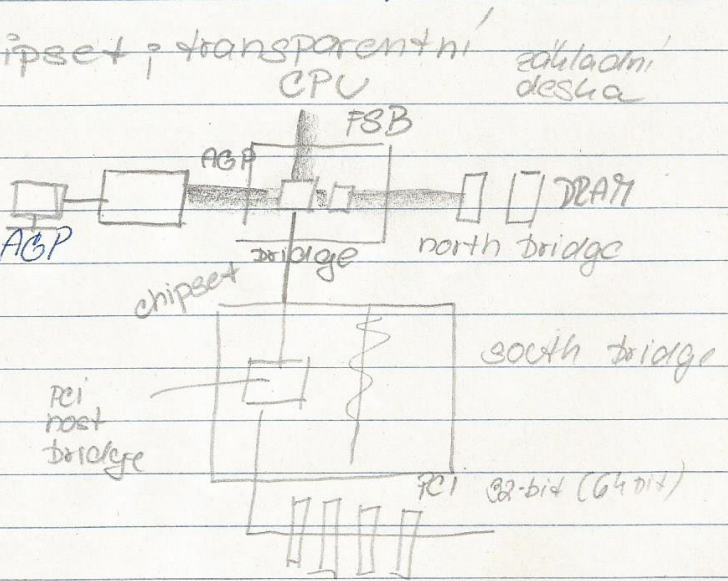 ipset ; transparentní
základní
deska
CPU
FSB
AGP
DRAM
AGP
bridge
north bridge
chipset
south bridge
PCI
host
bridge
PCI 32-bit (64 bit)